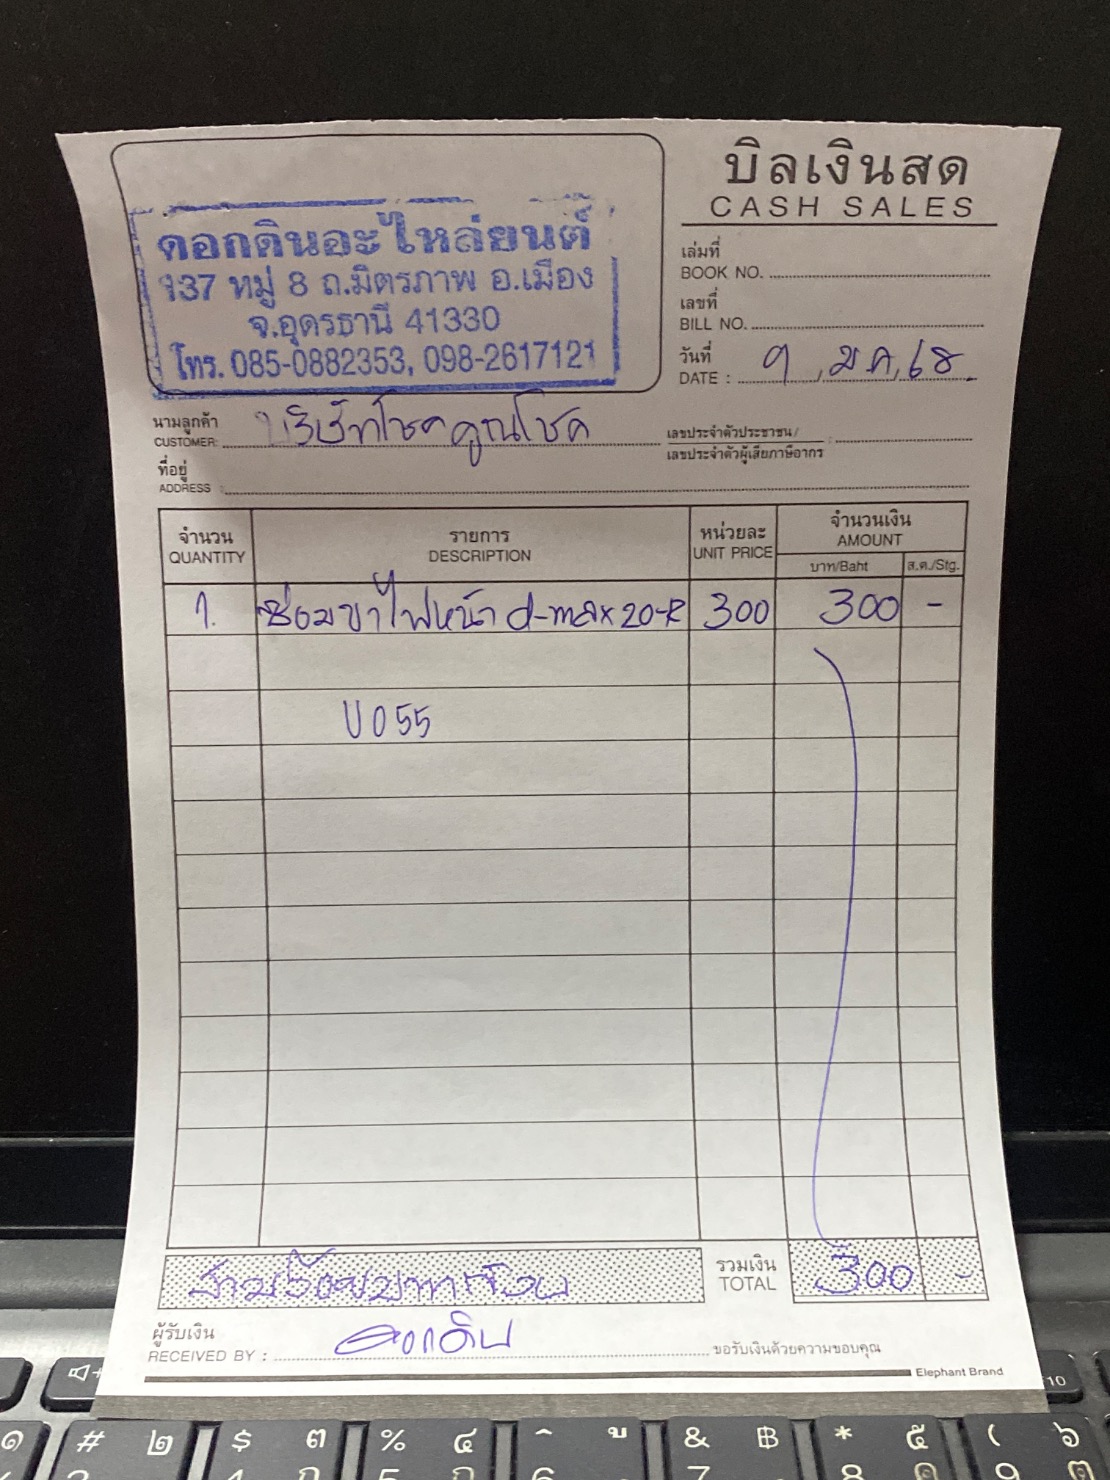 บิลเงินสด
CASH SALES
ดอกดินอะไหล่ยนต์
137 หมู่ 8 ถ.มิตรภาพ อ.เมือง
จ.อุดรธานี 41330
โทร. 085-0882353, 098-2617121
เล่มที่
BOOK NO.
เลขที่
BILL NO.
วันที่
DATE : 9, ม.ค, 68.
นามลูกค้า
CUSTOMER: บริษัทโชคคูณโชค
เลขประจำตัวประชาชน/
เลขประจำตัวผู้เสียภาษีอากร
ที่อยู่
ADDRESS :
จำนวน รายการ หน่วยละ จำนวนเงิน
QUANTITY DESCRIPTION UNIT PRICE AMOUNT
บาท/Baht ส.ต./Stg.
1. ซ่อมขาไฟหน้า d-max 20-R 300 300 -
U055
สามร้อยบาทถ้วน
รวมเงิน
TOTAL 300 -
ผู้รับเงิน
RECEIVED BY : ดอกดิน ขอรับเงินด้วยความขอบคุณ
Elephant Brand
F10
๑ # ๒ $ ๓ % ๔ ^ ู & ฿ * ๕ ( ๖